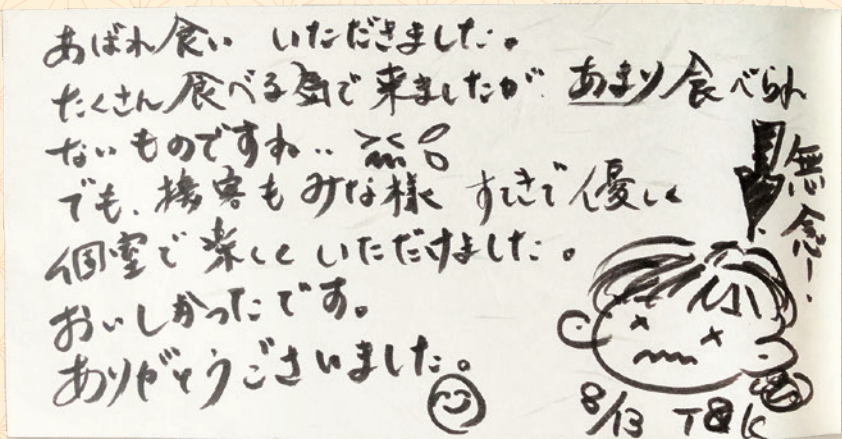 あばれ食い いただきました。
たくさん食べる気で来ましたが あまり食べられ
ないものですね‥
でも、接客もみな様 すてきで優しく
個室で楽しくいただけました。
おいしかったです。
ありがとうございました。
無念ー!
8/13 T&K